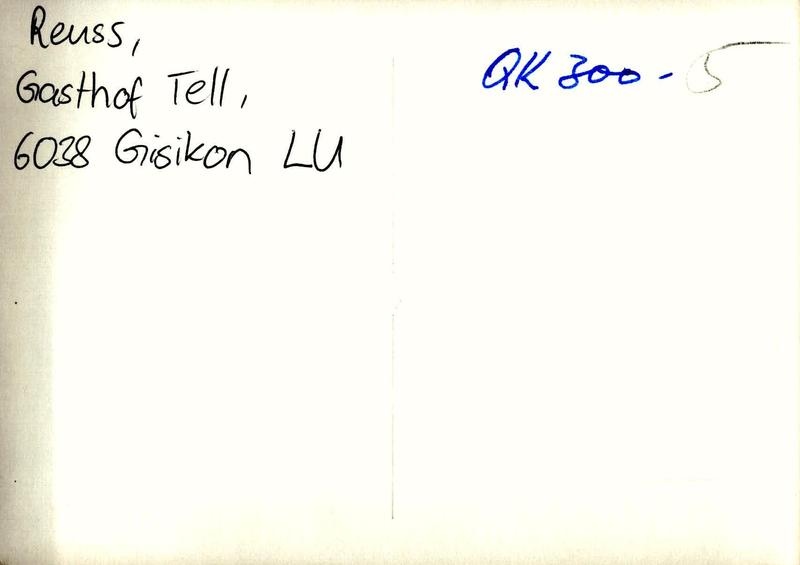 Reuss,
Gasthof Tell,
6038 Gisikon LU
QK 300 - 5